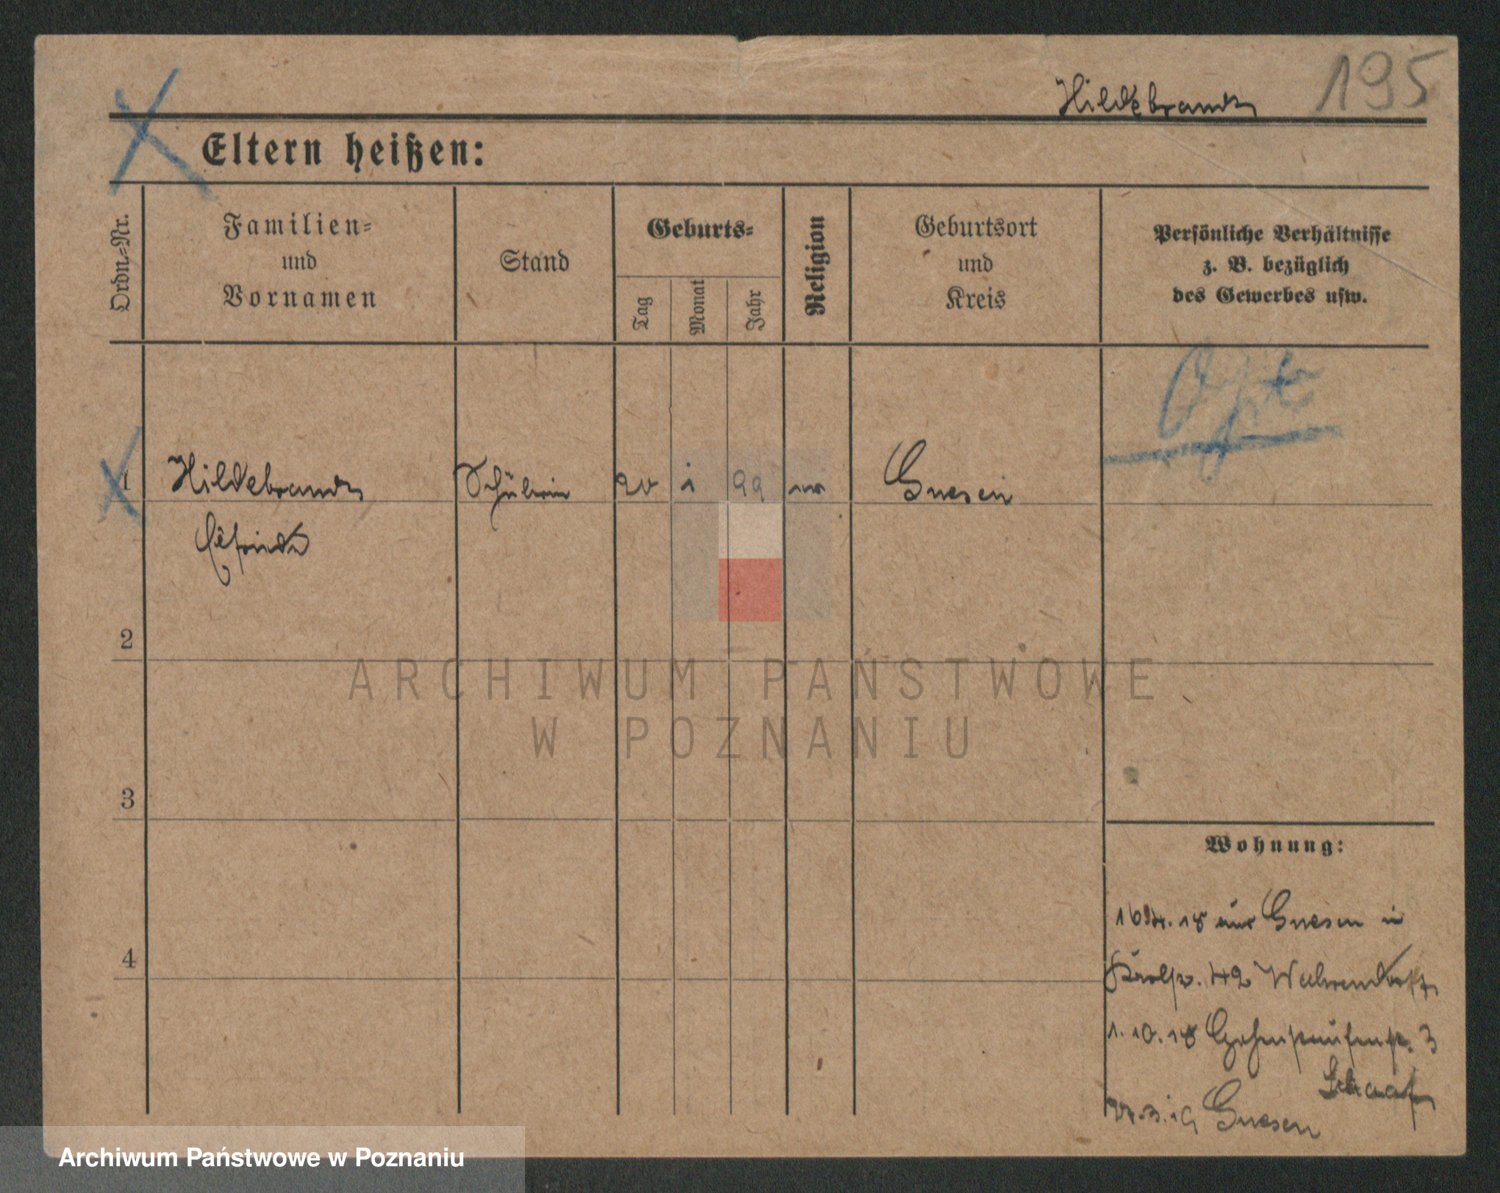 195
Hildebrandt
Eltern heißen:
Ordn.-Nr.
Familien-
und
Vornamen
Stand
Geburts-
Tag
Monat
Jahr
Religion
Geburtsort
und
Kreis
Persönliche Verhältnisse
z. B. bezüglich
des Gewerbes usw.
Opt
1 Hildebrandt Schülerin 20 1 99 Gnesen
Elfriede
2
ARCHIWUM PAŃSTWOWE
W POZNANIU
3
Wohnung:
18 aus Gnesen in
42 Wahrendorff
4
1.10.18 3
Schaaf
19 Gnesen
Archiwum Państwowe w Poznaniu